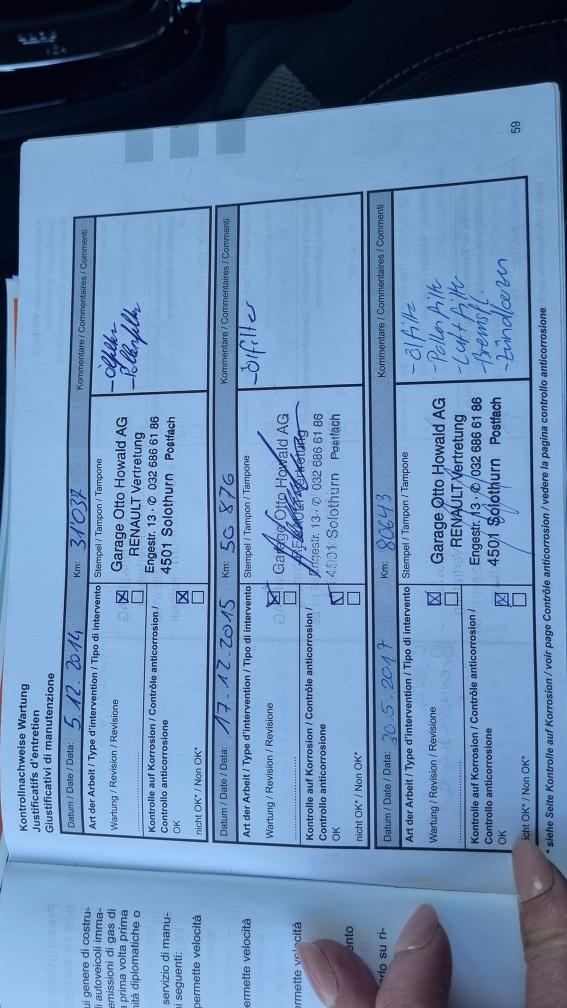 Kontrollnachweise Wartung
Justificatifs d'entretien
Giustificativi di manutenzione
Datum / Date / Data: 5.12.2014 Km: 31'037 Kommentare / Commentaires / Commenti
Art der Arbeit / Type d'intervention / Tipo di intervento Stempel / Tampon / Tampone
Wartung / Revision / Revisione
Kontrolle auf Korrosion / Contrôle anticorrosion /
Controllo anticorrosione
OK
nicht OK* / Non OK*
Garage Otto Howald AG
RENAULT Vertretung
Engestr. 13 · ✆ 032 686 61 86
4501 Solothurn Postfach
- Ölfilter
- Pollenfilter
Datum / Date / Data: 17.12.2015 Km: 50 876 Kommentare / Commentaires / Commenti
Art der Arbeit / Type d'intervention / Tipo di intervento Stempel / Tampon / Tampone
Wartung / Revision / Revisione
Kontrolle auf Korrosion / Contrôle anticorrosion /
Controllo anticorrosione
OK
nicht OK* / Non OK*
Garage Otto Howald AG
RENAULT Vertretung
Engestr. 13 · ✆ 032 686 61 86
4501 Solothurn Postfach
- Ölfilter
Datum / Date / Data: 30.5.2017 Km: 80643 Kommentare / Commentaires / Commenti
Art der Arbeit / Type d'intervention / Tipo di intervento Stempel / Tampon / Tampone
Wartung / Revision / Revisione
Kontrolle auf Korrosion / Contrôle anticorrosion /
Controllo anticorrosione
OK
icht OK* / Non OK*
Garage Otto Howald AG
RENAULT Vertretung
Engestr. 13 · ✆ 032 686 61 86
4501 Solothurn Postfach
- Ölfilter
- Pollenfilter
- Luftfilter
- Bremsfl.
- Zündkerzen
* siehe Seite Kontrolle auf Korrosion / voir page Contrôle anticorrosion / vedere la pagina controllo anticorrosione
59
ui genere di costru-
i autoveicoli imma-
emissioni di gas di
a prima volta prima
ità diplomatiche o
servizio di manu-
i seguenti:
permette velocità
ermette velocità
rmette velocità
ento
su ri-